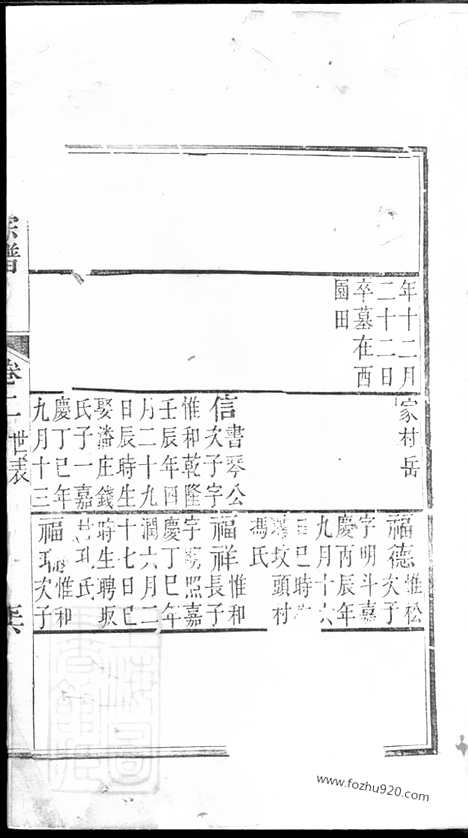 年十二月
二十二日
卒墓在西
園田
家村岳
信書琴公
次子字
惟和乾隆
壬辰年四
月二十九
日辰時生
娶潘庄錢
氏子一嘉
慶丁巳年
九月十三
福德惟松
次子
字明斗嘉
慶丙辰年
九月十六
日巳時
墳頭村
馮氏
福祥惟和
長子
字照嘉
慶丁巳年
潤六月二
十七日巳
時生聘坂
氏
福惟和
次子
宗譜
卷二世表
www.fozhu920.com